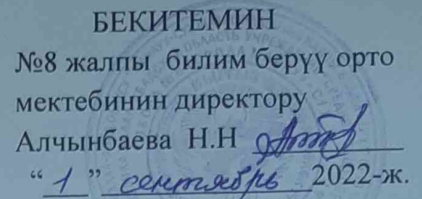 БЕКИТЕМИН
№8 жалпы билим берүү орто
мектебинин директору
Алчынбаева Н.Н
“1” сентябрь 2022-ж.